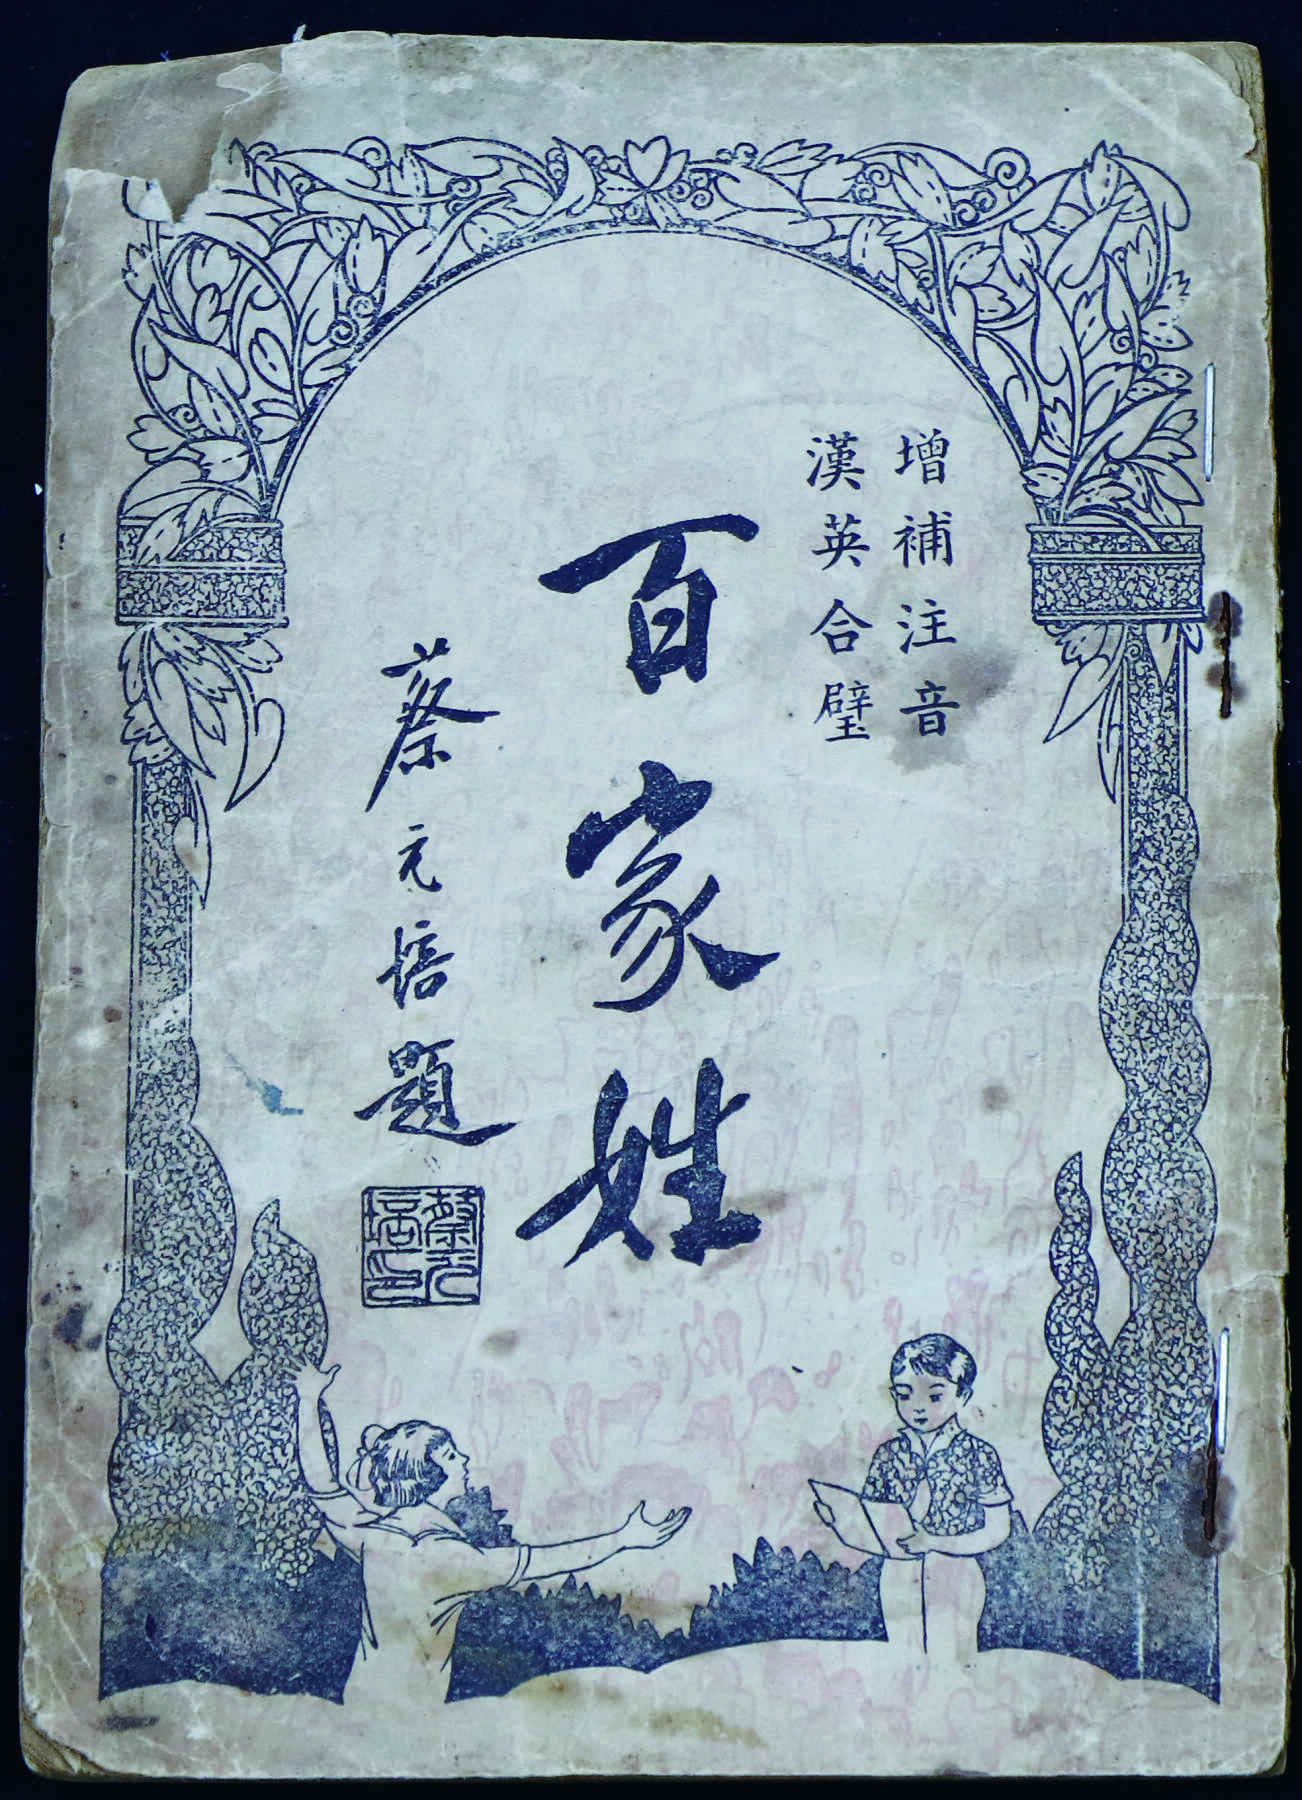 增補注音
漢英合璧
百家姓
蔡元培題
蔡元培印